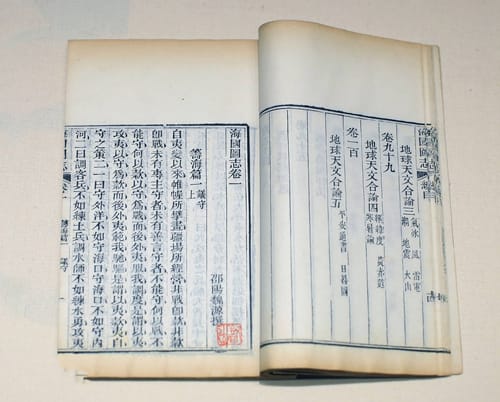 海國圖志 總目
地球天文合論三 氣 冰 風 雷電 潮 地震 火山
卷九十九
地球天文合論四
卷一百
地球天文合論五 平安通書 日晷圖
海國圖志卷一
籌海篇一 議守上
邵陽魏源撰
自夷變以來帷幄所擘畫疆場所經營非戰即款非款
即戰未有專主守者未有善言守者不能守何以戰不
能守何以款以守為戰而後外夷服我調度是謂以夷
攻夷以守為款而後外夷範我馳驅是謂以夷款夷自
守之策二一曰守外洋不如守海口守海口不如守內
河二曰調客兵不如練土兵調水師不如練水勇攻夷